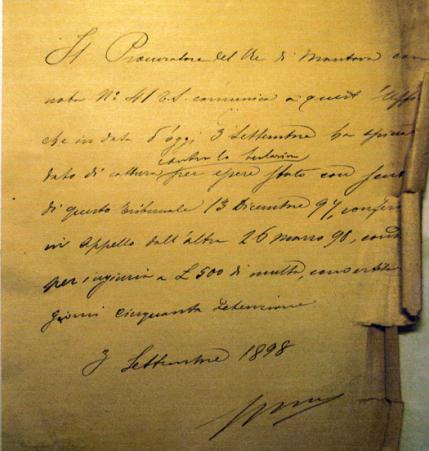 Il Procuratore del Re di Mantova con
nota N° 41 C.S. comunica a quest' Uffi
che in data d'oggi 3 Settembre ha spicca
contro la
dato di cattura per essere stato con sent
di questo Tribunale 13 Dicembre 97, confer
in Appello dall'altra 26 marzo 98, cond
per ingiuria a L 500 di multa, convertita
giorni cinquanta detenzione
3 Settembre 1898